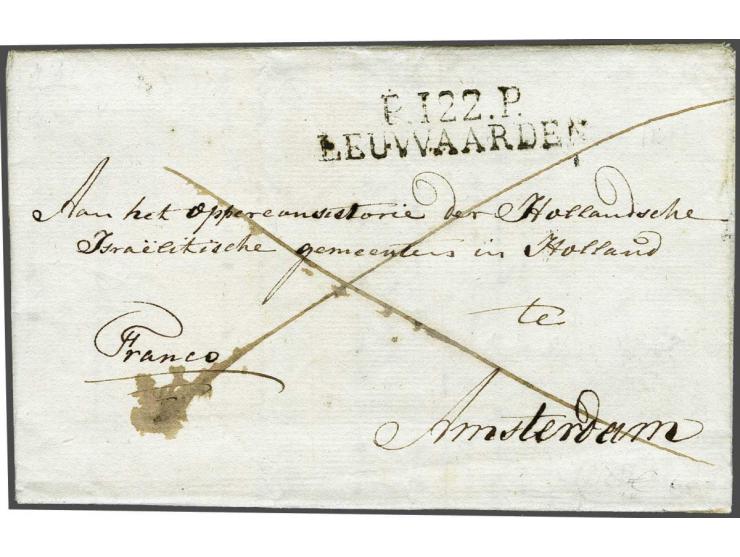 P.122.P.
LEUWAARDEN
Aan het opperconsistorie der Hollandsche
Israëlitische gemeentens in Holland
te
Franco
Amsterdam